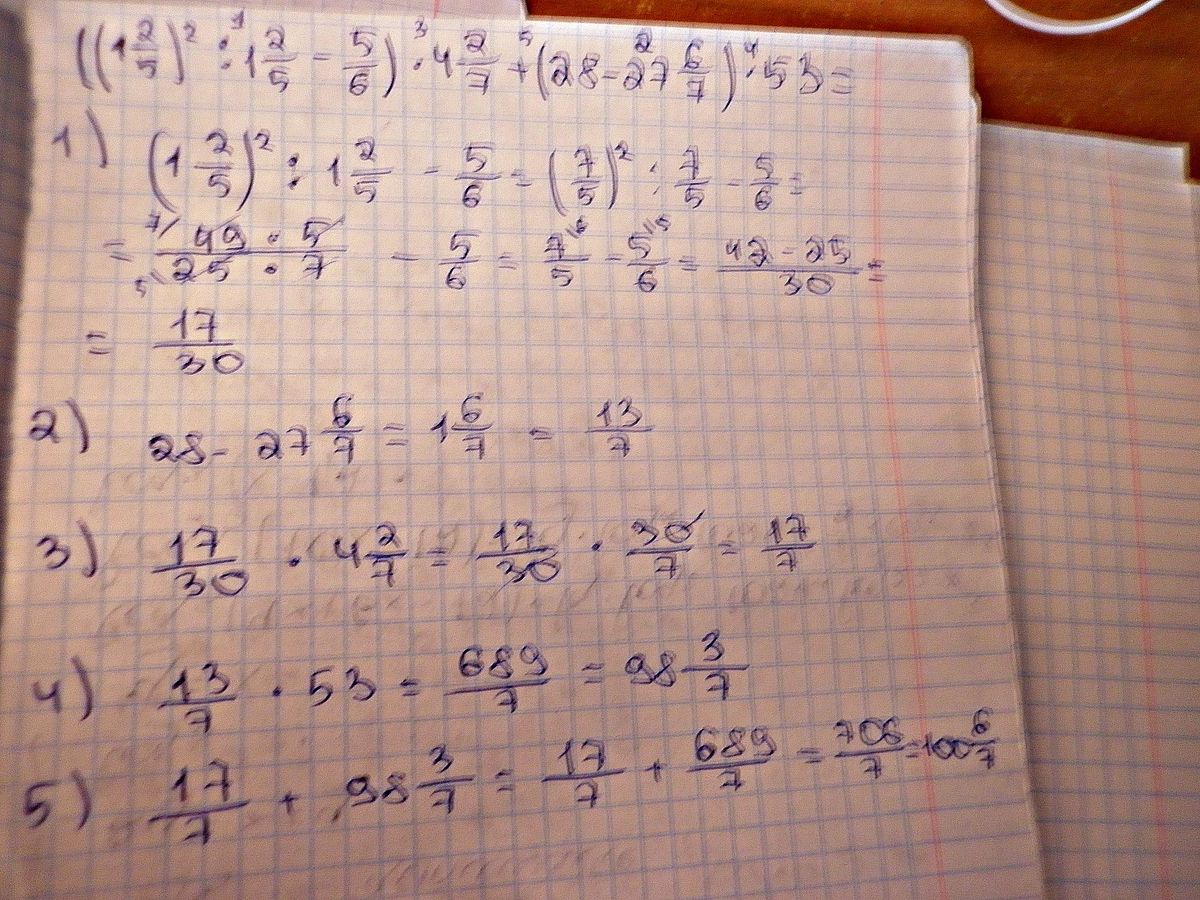 ((1 2/5)² : 1 2/5 - 5/6) · 4 2/7 + (28 - 27 6/7) · 53 =
1) (1 2/5)² : 1 2/5 - 5/6 = (7/5)² : 7/5 - 5/6 =
= (49 · 5)/(25 · 7) - 5/6 = 7/5 - 5/6 = (42 - 25)/30 =
= 17/30
2) 28 - 27 6/7 = 1 6/7 = 13/7
3) 17/30 · 4 2/7 = 17/30 · 30/7 = 17/7
4) 13/7 · 53 = 689/7 = 98 3/7
5) 17/7 + 98 3/7 = 17/7 + 689/7 = 706/7 = 100 6/7